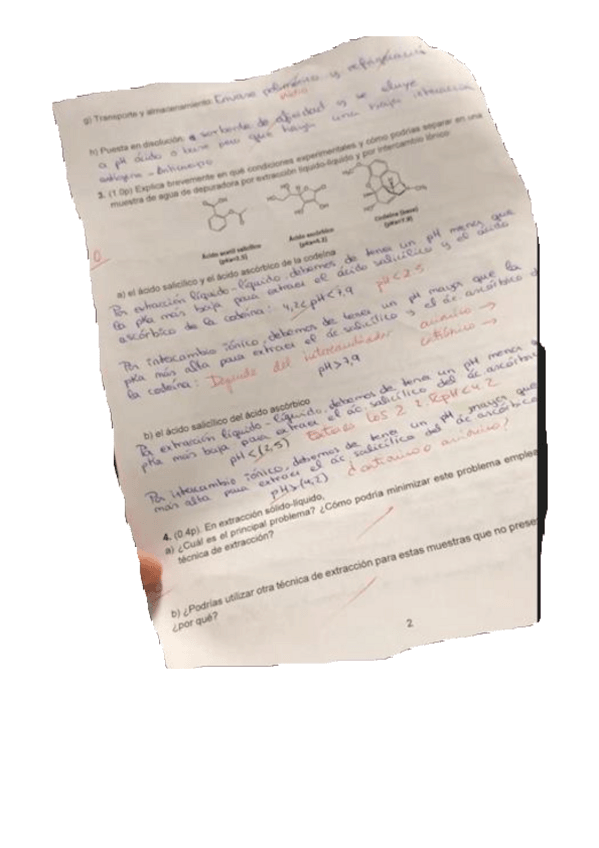 g) Transporte y almacenamiento: Envase polimérico y refrigeración
vidrio
h) Puesta en disolución: sorbente de afinidad y se eluye
a pH ácido o base para que haya una baja interacción
antígeno - anticuerpo
3. (1.0p) Explica brevemente en que condiciones experimentales y cómo podrías separar en una
muestra de agua de depuradora por extracción líquido-líquido y por intercambio iónico
HO
CH₃
Ácido acetil salicílico
Ácido ascórbico
(pKa=4,2)
Codeína (base)
(pKa=7,9)
0
a) el ácido salicílico y el ácido ascórbico de la codeína
Por extracción líquido-líquido, debemos de tener un pH menos que
la pKa más baja para extraer el ácido salicílico y el ácido
ascórbico de la codeína: 4,2<pH<7,9 pH<2.5
Por intercambio iónico, debemos de tener un pH mayor que la
pKa más alta para extraer el ác. salicílico y el ác ascórbico d
la codeína: Depende del intercambiador aniónico →
catiónico →
pH>7,9
b) el ácido salicílico del ácido ascórbico
Por extracción líquido-líquido, debemos de tener un pH menor
pKa más baja para extraer el ác. salicílico del ác ascórbico
pH<(2,5) Extraes los 2 pH<4,2
Por intercambio iónico, debemos de tener un pH mayor que
más alta para extraer el ác salicílico del ác ascórbico
pH>(4,2) ¿catiónico o aniónico?
4. (0.4p). En extracción sólido-líquido,
a) ¿Cuál es el principal problema? ¿Cómo podría minimizar este problema emplea
técnica de extracción?
b) ¿Podrías utilizar otra técnica de extracción para estas muestras que no prese
¿por qué?
2